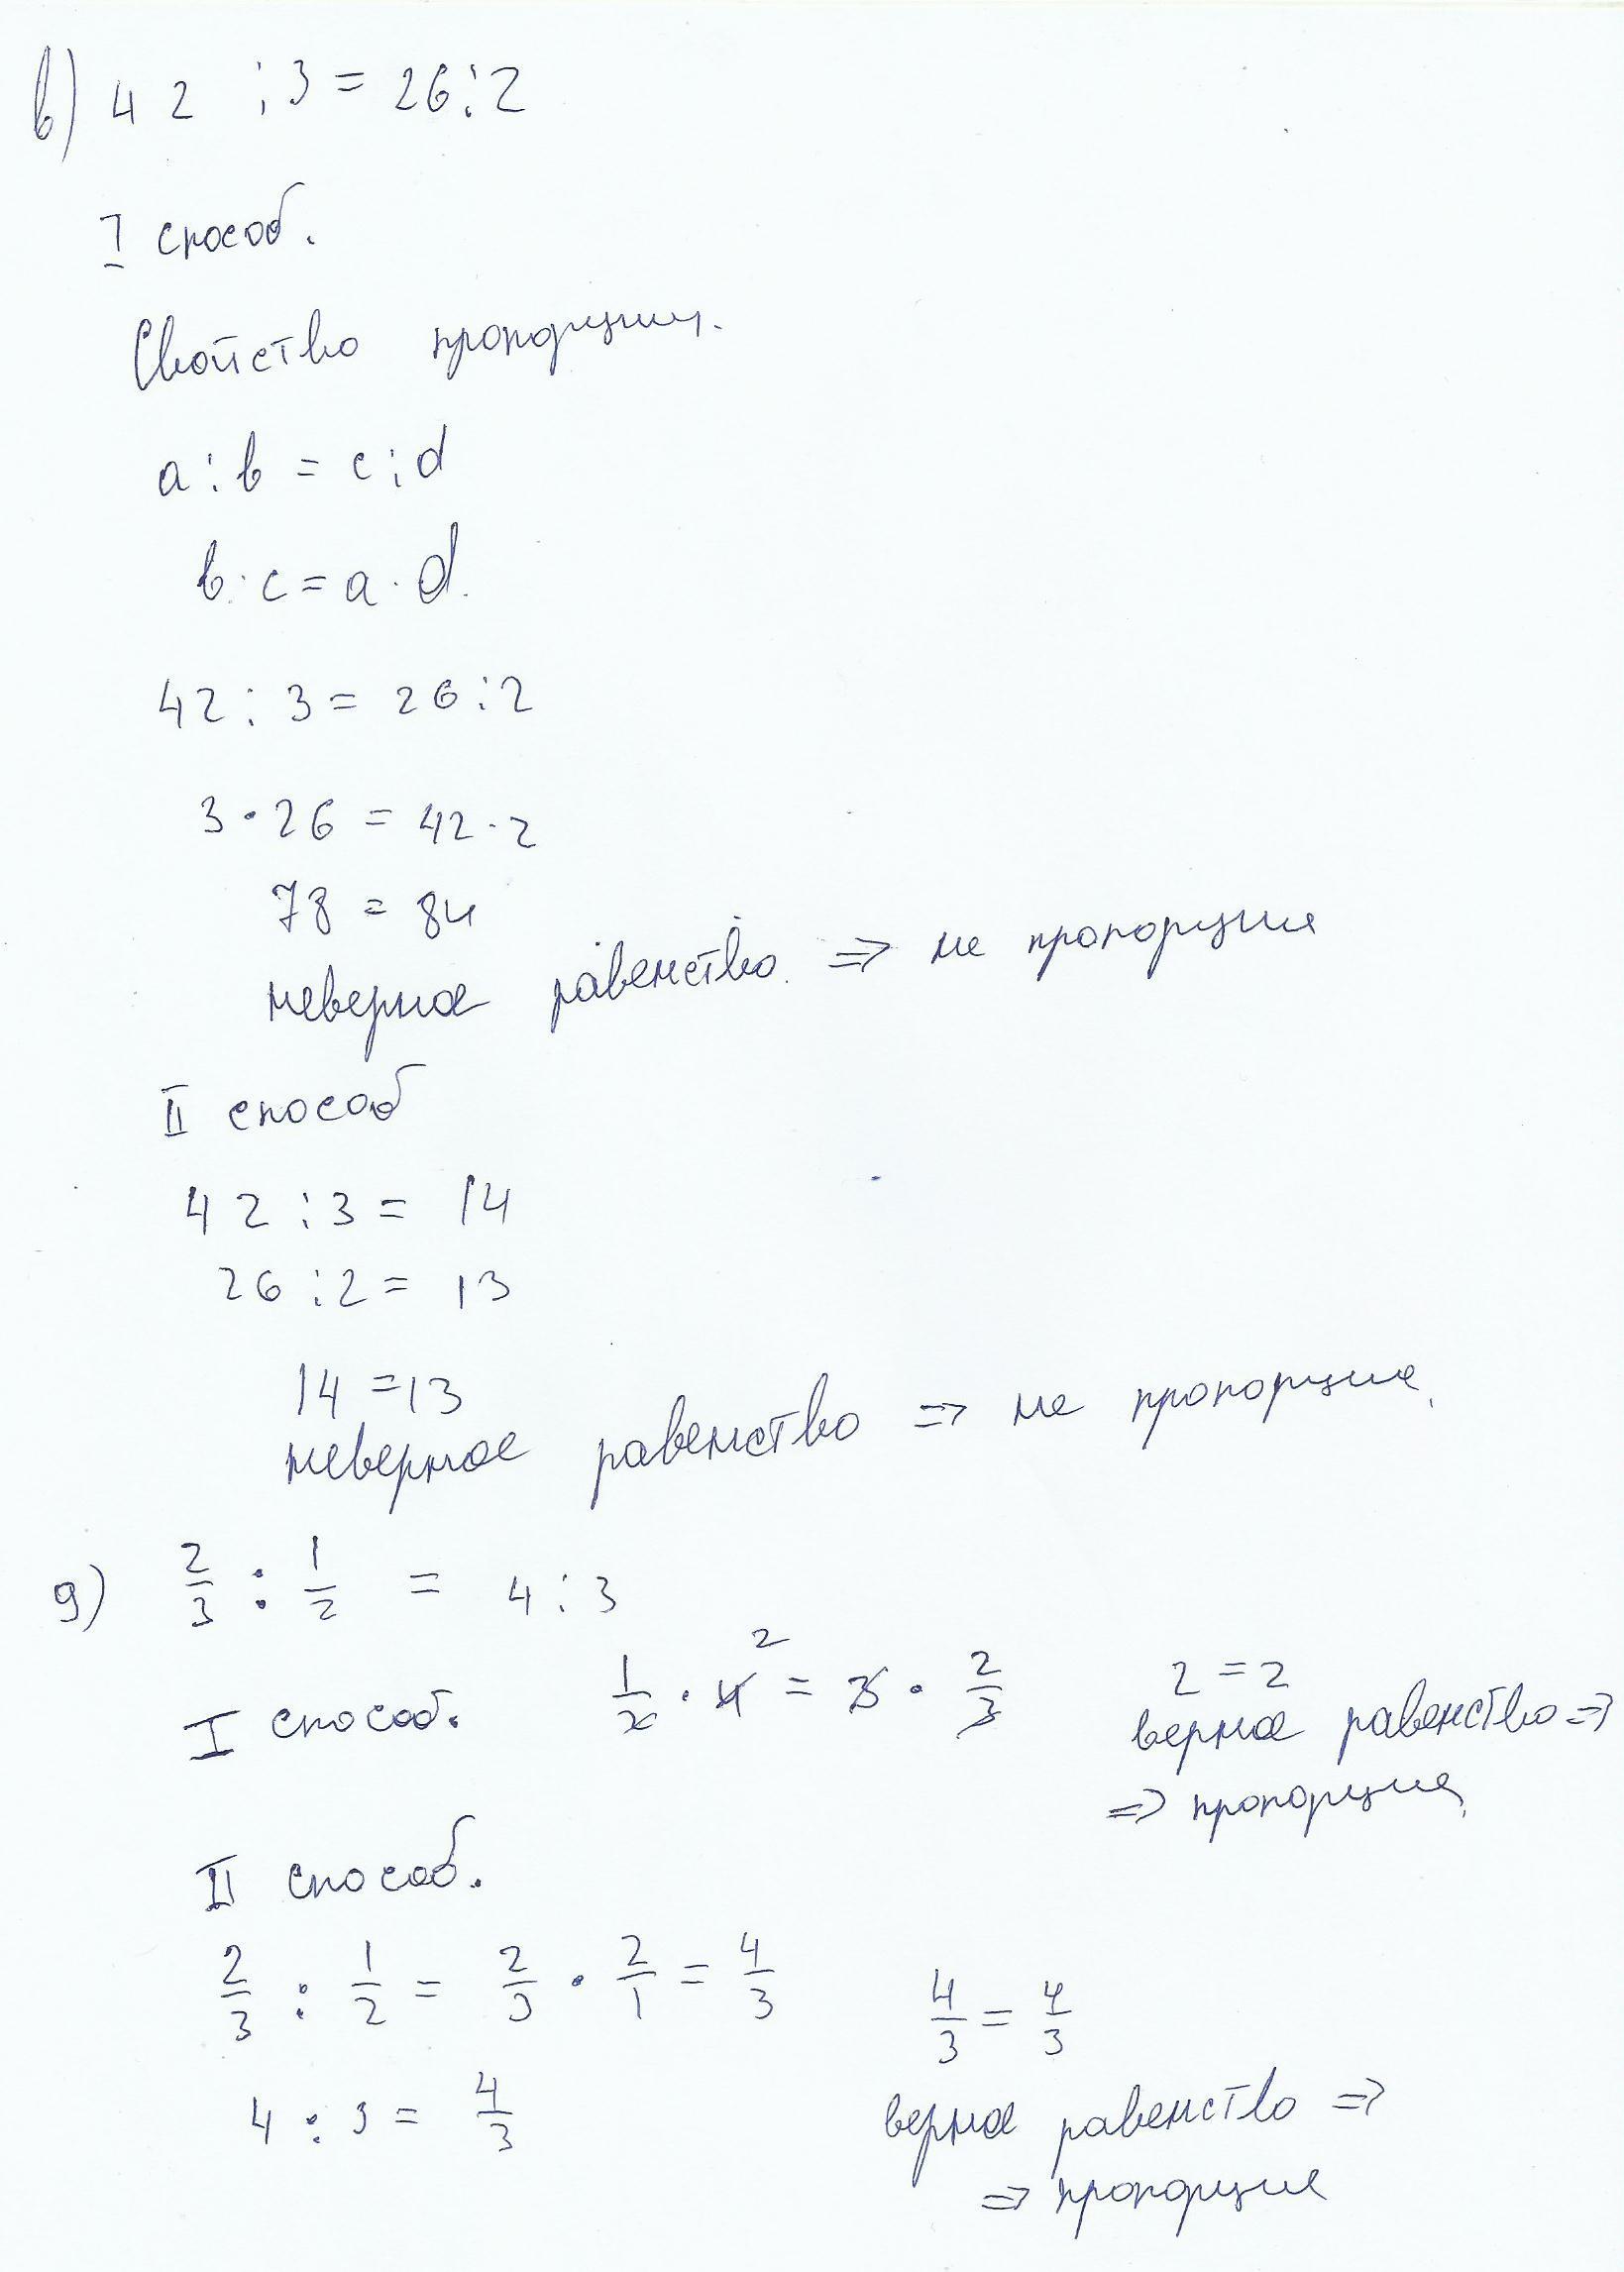 в) 42 : 3 = 26 : 2
I способ.
Свойство пропорции.
a : b = c : d
b · c = a · d.
42 : 3 = 26 : 2
3 · 26 = 42 · 2
78 = 84
неверное равенство. => не пропорция
II способ
42 : 3 = 14
26 : 2 = 13
14 = 13
неверное равенство => не пропорция.
g) 2/3 : 1/2 = 4 : 3
I способ. 1/2 · 4 2 = 3 · 2/3 2 = 2
верное равенство =>
=> пропорция.
II способ.
2/3 : 1/2 = 2/3 · 2/1 = 4/3 4/3 = 4/3
4 : 3 = 4/3 верное равенство =>
=> пропорция